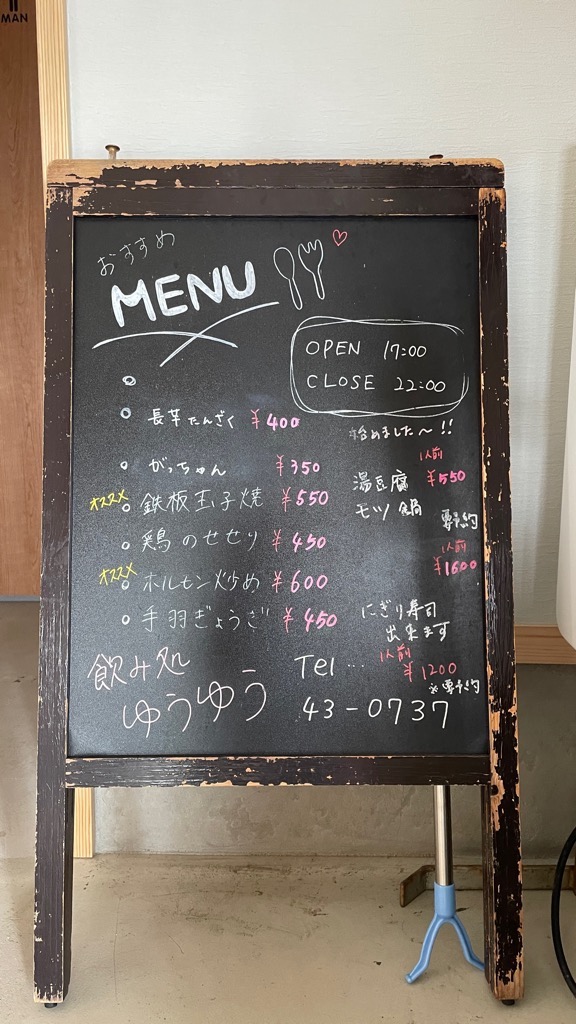 MAN
おすすめ
MENU
OPEN 17:00
CLOSE 22:00
長芋たんざく ¥400
がっちゃん ¥350
オススメ 鉄板玉子焼 ¥550
鶏のせせり ¥450
オススメ ホルモン炒め ¥600
手羽ぎょうざ ¥450
始めました〜!!
湯豆腐 1人前 ¥550
モツ鍋 要予約
1人前
¥1600
にぎり寿司
出来ます
1人前
¥1200
※要予約
飲み処
ゆうゆう
Tel…
43-0737